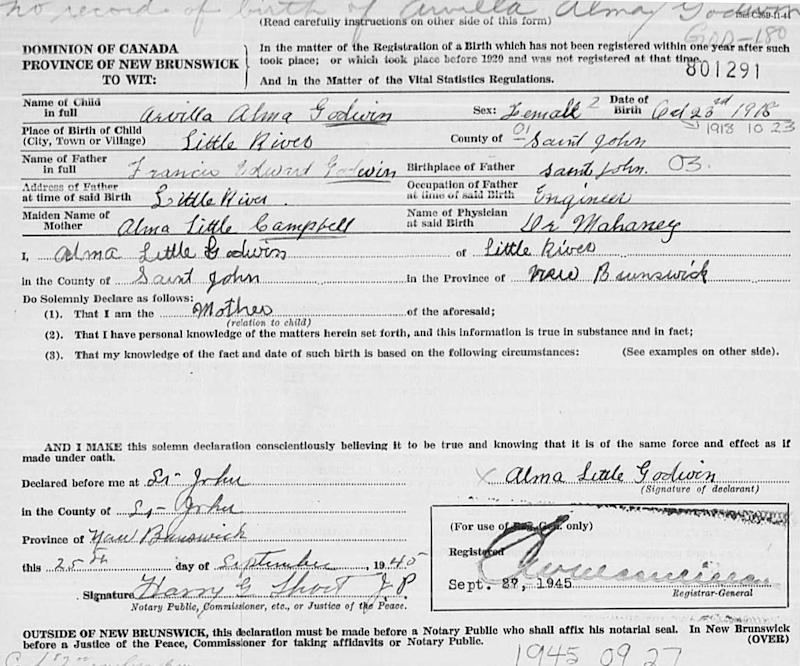 no record of birth of Arvilla Alma Godwin
(Read carefully instructions on other side of this form)
GOD-180
801291
DOMINION OF CANADA
PROVINCE OF NEW BRUNSWICK
TO WIT:
In the matter of the Registration of a Birth which has not been registered within one year after such
took place; or which took place before 1920 and was not registered at that time.
And in the Matter of the Vital Statistics Regulations.
Name of Child in full Arvilla Alma Godwin Sex: Female 2 Date of Birth Oct 23rd 1918
1918 10 23
Place of Birth of Child (City, Town or Village) Little River County of 01 Saint John
Name of Father in full Francis Edward Godwin Birthplace of Father Saint John. 03.
Address of Father at time of said Birth Little River. Occupation of Father at time of said Birth Engineer
Maiden Name of Mother Alma Little Campbell Name of Physician at said Birth Dr Mahaney
I, Alma Little Godwin of Little River
in the County of Saint John in the Province of New Brunswick
Do Solemnly Declare as follows:
(1). That I am the Mother of the aforesaid;
(relation to child)
(2). That I have personal knowledge of the matters herein set forth, and this information is true in substance and in fact;
(3). That my knowledge of the fact and date of such birth is based on the following circumstances: (See examples on other side).
AND I MAKE this solemn declaration conscientiously believing it to be true and knowing that it is of the same force and effect as if
made under oath.
Declared before me at St- John
x Alma Little Godwin
(Signature of declarant)
in the County of St- John
Province of New Brunswick
this 25th day of September 1945
Signature Harry G Short J.P.
Notary Public, Commissioner, etc., or Justice of the Peace.
(For use of Reg. Gen. only)
Registered
Sept. 27, 1945
Registrar-General
OUTSIDE OF NEW BRUNSWICK, this declaration must be made before a Notary Public who shall affix his notarial seal. In New Brunswick
before a Justice of the Peace, Commissioner for taking affidavits or Notary Public. (OVER)
1945 09 27